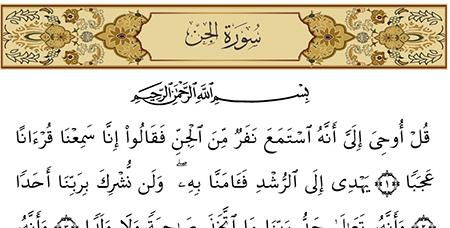 سُورَةُ الجِنّ
بِسْمِ ٱللَّهِ ٱلرَّحْمَٰنِ ٱلرَّحِيمِ
قُلْ أُوحِىَ إِلَىَّ أَنَّهُ ٱسْتَمَعَ نَفَرٌ مِّنَ ٱلْجِنِّ فَقَالُوٓا۟ إِنَّا سَمِعْنَا قُرْءَانًا
عَجَبًا ﴿١﴾ يَهْدِىٓ إِلَى ٱلرُّشْدِ فَـَٔامَنَّا بِهِۦ ۖ وَلَن نُّشْرِكَ بِرَبِّنَآ أَحَدًا
﴿٢﴾ وَأَنَّهُۥ تَعَٰلَىٰ جَدُّ رَبِّنَا مَا ٱتَّخَذَ صَٰحِبَةً وَلَا وَلَدًا ﴿٣﴾ وَأَنَّهُۥ